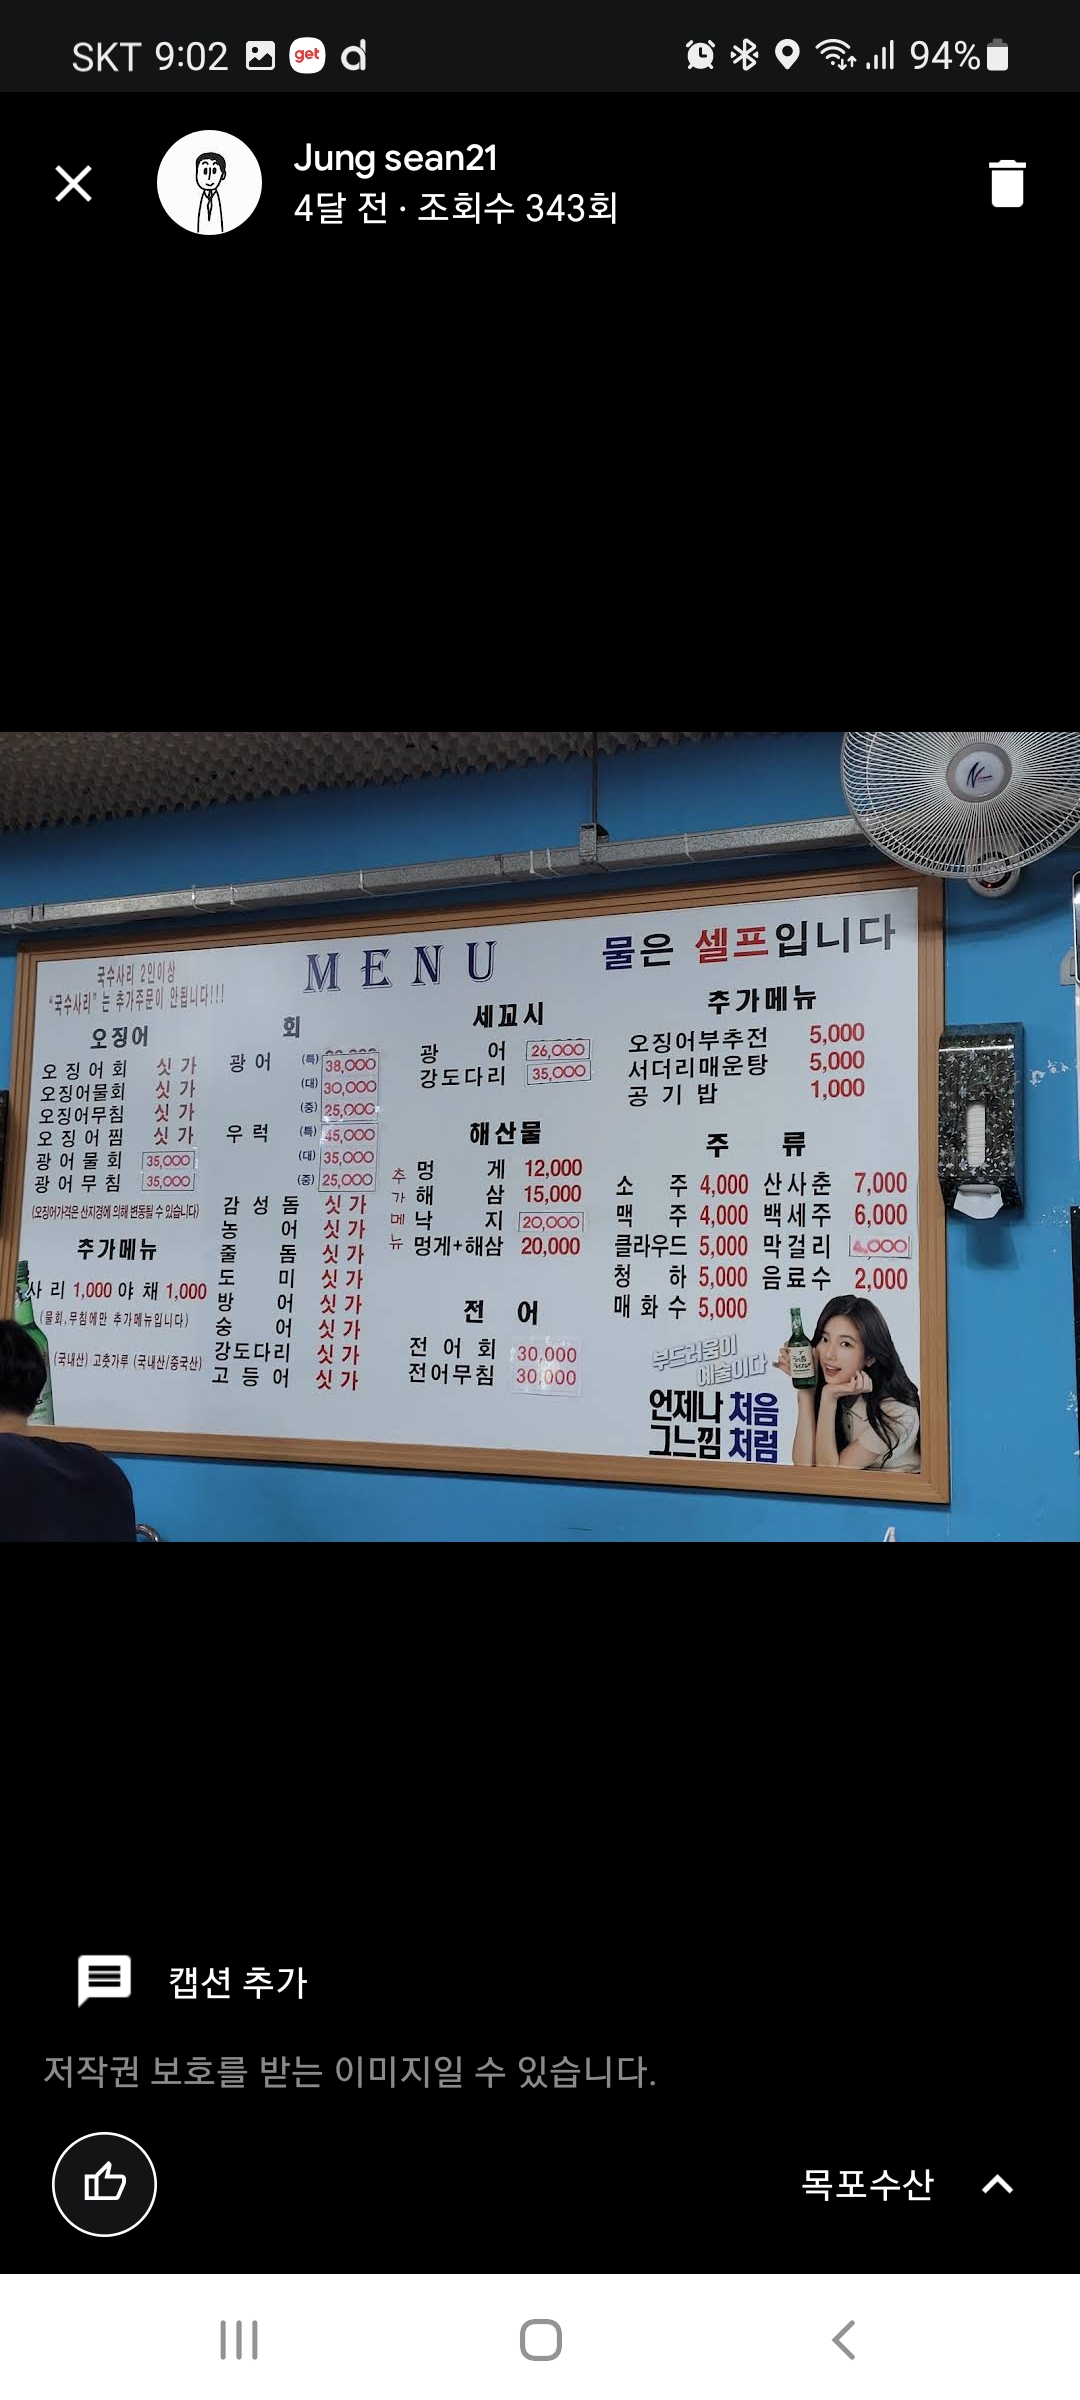 SKT 9:02 get d 94%
Jung sean21
4달 전 · 조회수 343회
MENU
물은 셀프입니다
국수사리 2인이상
"국수사리"는 추가주문이 안됩니다!!!
오징어
오징어회 싯가
오징어물회 싯가
오징어무침 싯가
오징어찜 싯가
광어물회 35,000
광어무침 35,000
(오징어가격은 산지경에 의해 변동될 수 있습니다)
추가메뉴
사리 1,000 야채 1,000
(물회,무침에만 추가메뉴입니다)
(국내산) 고춧가루 (국내산/중국산)
회
광어 (특) 38,000
(대) 30,000
(중) 25,000
우럭 (특) 45,000
(대) 35,000
(중) 25,000
감성돔 싯가
농어 싯가
줄돔 싯가
도미 싯가
방어 싯가
숭어 싯가
강도다리 싯가
고등어 싯가
세꼬시
광어 26,000
강도다리 35,000
해산물
추가메뉴
멍게 12,000
해삼 15,000
낙지 20,000
멍게+해삼 20,000
전어
전어회 30,000
전어무침 30,000
추가메뉴
오징어부추전 5,000
서더리매운탕 5,000
공기밥 1,000
주류
소주 4,000 산사춘 7,000
맥주 4,000 백세주 6,000
클라우드 5,000 막걸리 4,000
청하 5,000 음료수 2,000
매화수 5,000
부드러움이
예술이다
언제나 처음
그느낌 처럼
캡션 추가
저작권 보호를 받는 이미지일 수 있습니다.
목포수산